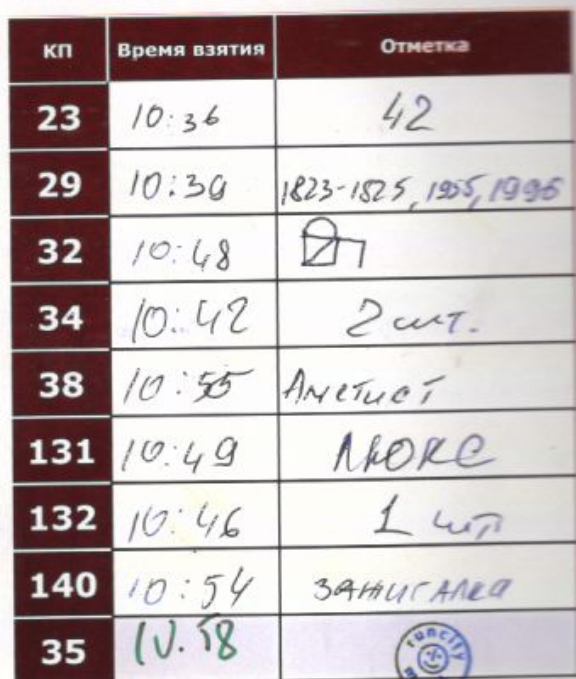 КП Время взятия Отметка
23 10:36 42
29 10:39 1823-1825, 1955, 1996
32 10:48
34 10:42 2 шт.
38 10:55 Аметист
131 10:49 ЛЮКС
132 10:46 1 шт
140 10:54 ЗАЖИГАЛКА
35 10.58 runcity